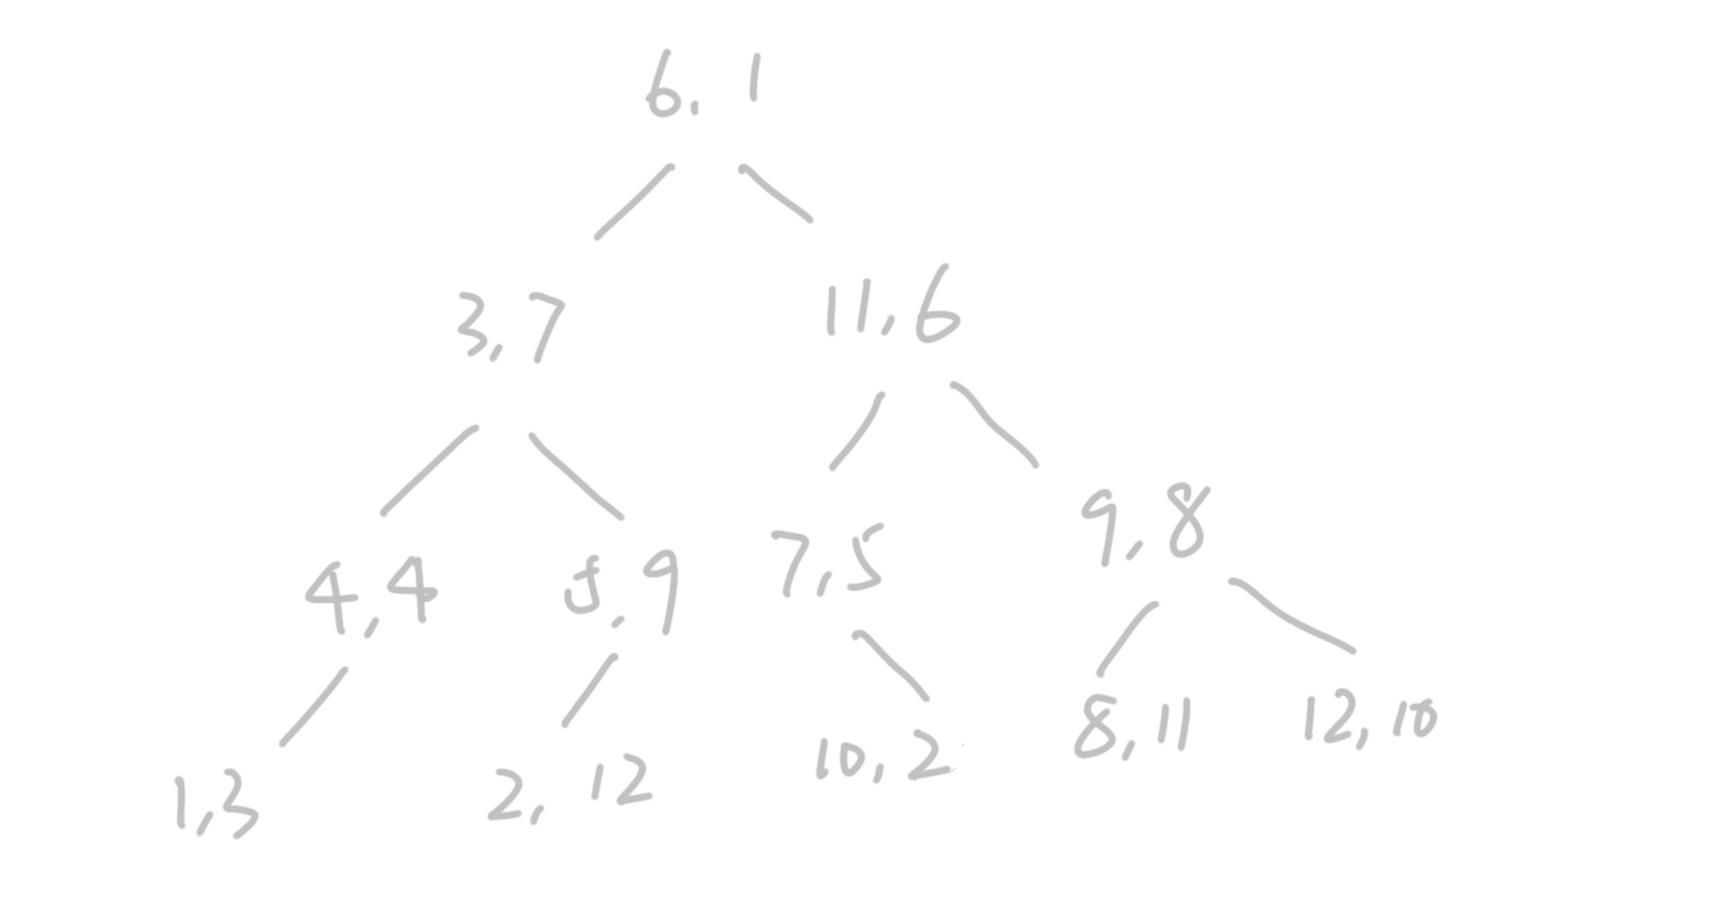 6, 1
3,7 11,6
4,4 5,9 7,5 9,8
1,3 2, 12 10,2 8,11 12,10